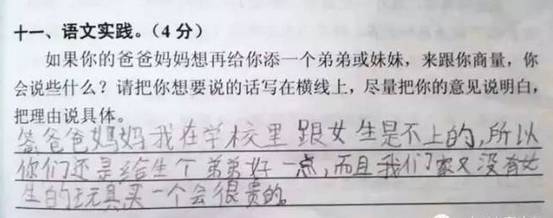 十一、语文实践。(4分)
如果你的爸爸妈妈想再给你添一个弟弟或妹妹，来跟你商量，你
会说些什么？请把你想要说的话写在横线上，尽量把你的意见说明白，
把理由说具体。
答爸爸妈妈我在学校里跟女生是不上的，所以
你们还是给生个弟弟好一点，而且我们家又没有女
生的玩具买一个会很贵的。